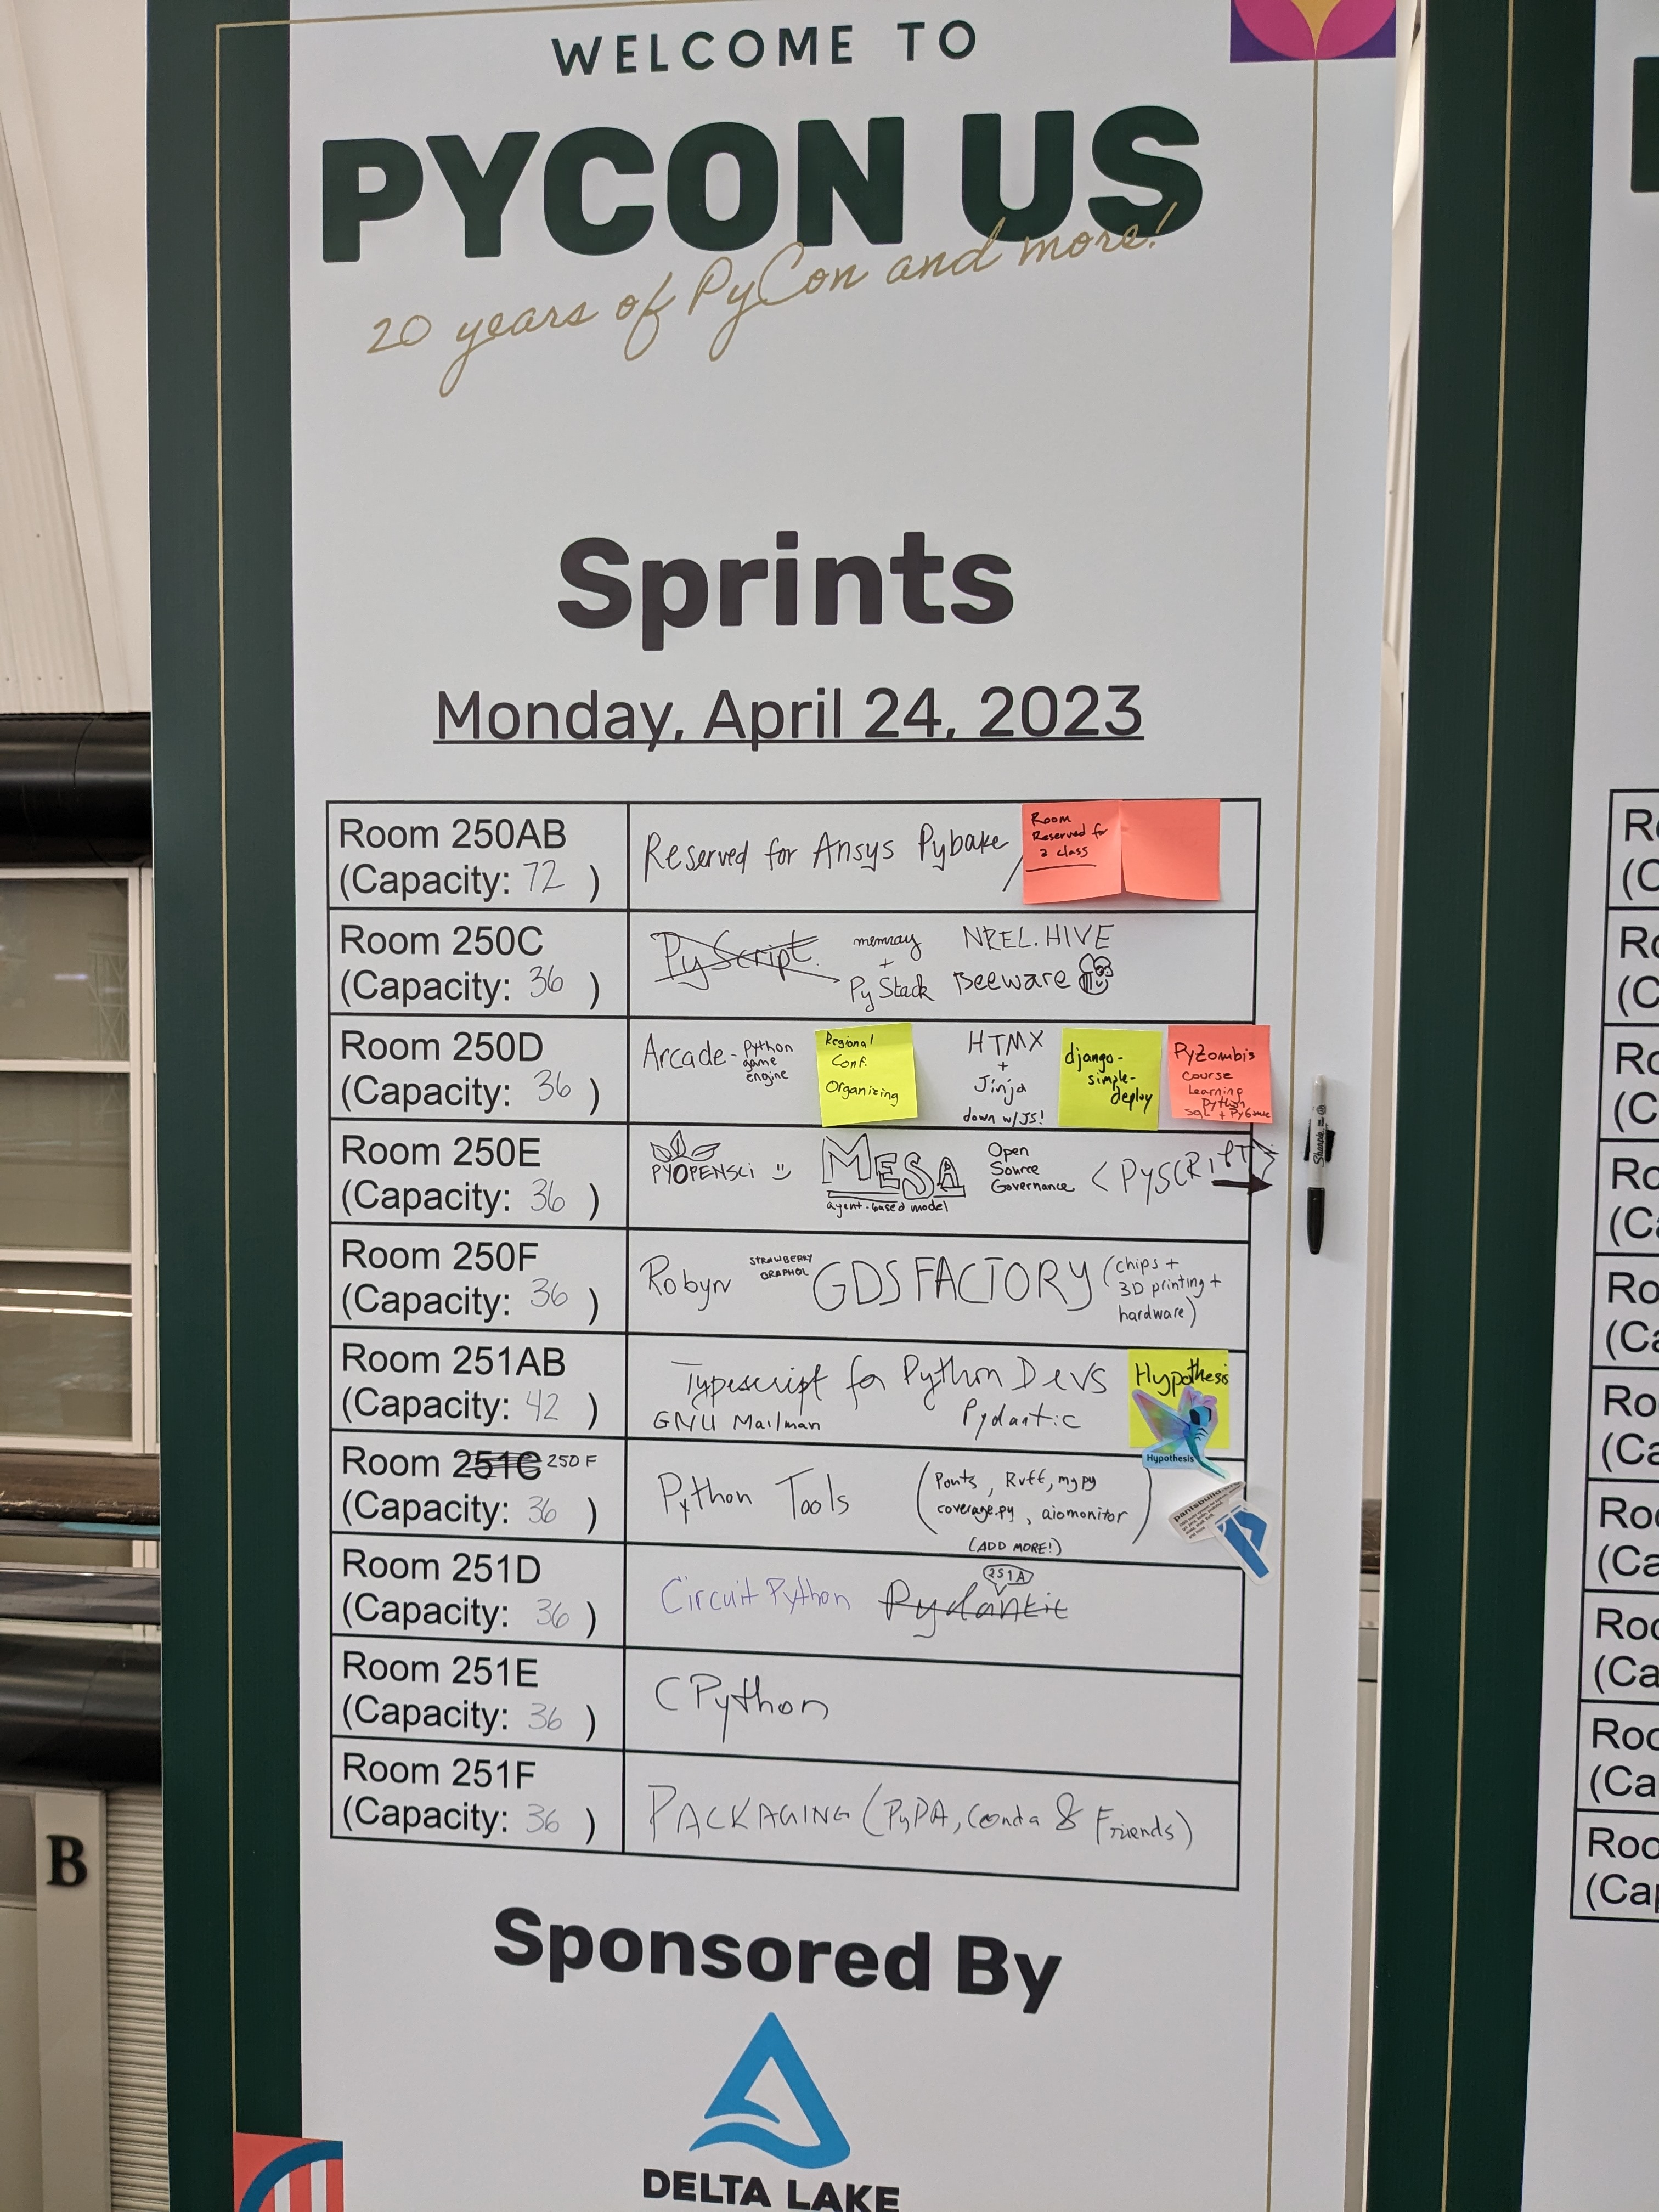 WELCOME TO
PYCON US
20 years of PyCon and more!
Sprints
Monday, April 24, 2023
Room 250AB
(Capacity: 72 )
Reserved for Ansys Pybake
Room
Reserved for
a class
Room 250C
(Capacity: 36 )
PyScript
memray
+
PyStack
NREL.HIVE
Beeware
Room 250D
(Capacity: 36 )
Arcade - Python
game
engine
Regional
Conf.
Organizing
HTMX
+
Jinja
down w/JS!
django-
simple-
deploy
PyZombis
Course
Learning
Python
SQL + PyGame
Room 250E
(Capacity: 36 )
PYOPENSCI
MESA
agent-based model
Open
Source
Governance
<PYSCRIPT>
Room 250F
(Capacity: 36 )
Robyn
STRAWBERRY
GRAPHQL
GDSFACTORY
(chips +
3D printing +
hardware)
Room 251AB
(Capacity: 42 )
Typescript for Python Devs
GNU Mailman
Pydantic
Hypothesis
Hypothesis
Room 251C 250 F
(Capacity: 36 )
Python Tools
(Pants, Ruff, mypy
coverage.py, aiomonitor)
(ADD MORE!)
pantsbuild
Room 251D
(Capacity: 36 )
Circuit Python
Pydantic
251A
Room 251E
(Capacity: 36 )
CPython
Room 251F
(Capacity: 36 )
PACKAGING (PyPA, Conda & Friends)
Sponsored By
DELTA LAKE
Sharpie
B